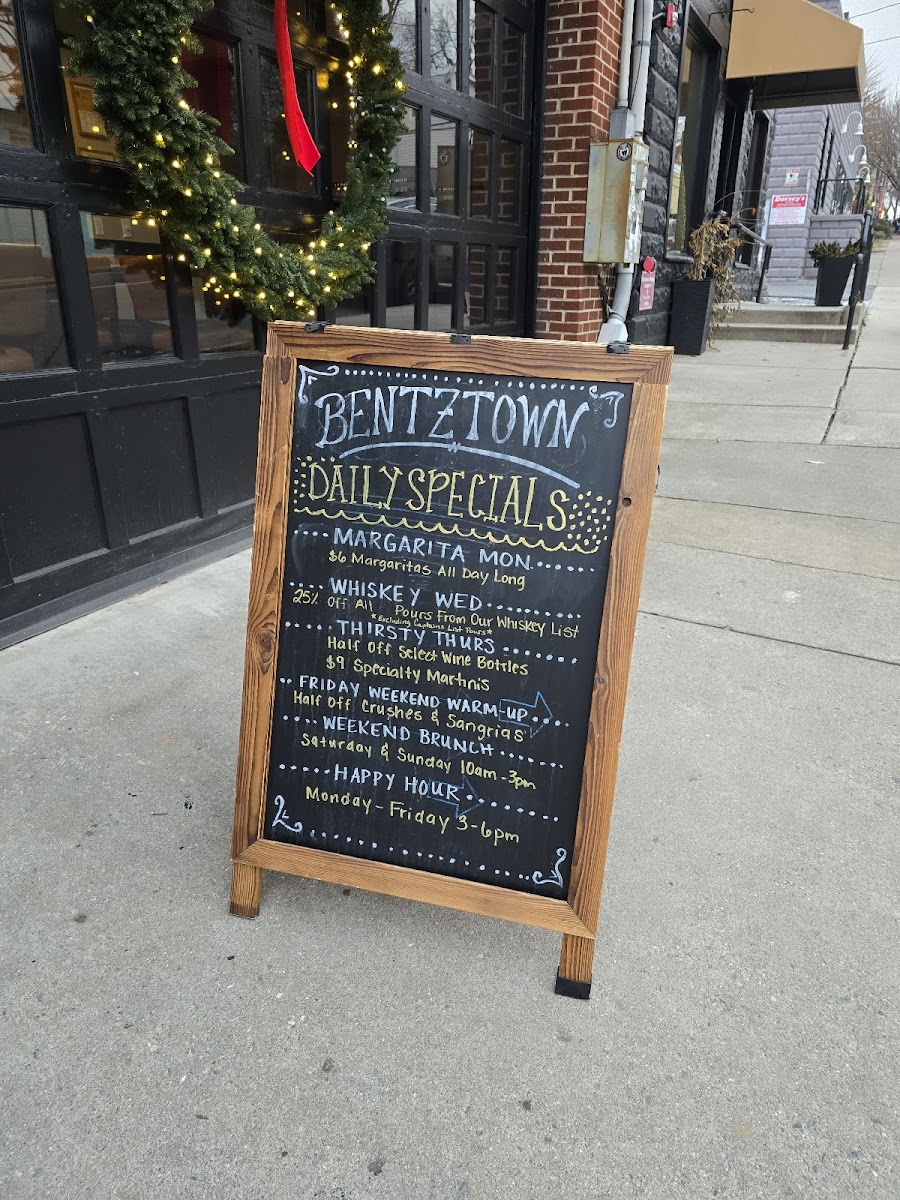 BENTZTOWN
DAILY SPECIALS
MARGARITA MON.
$6 Margaritas All Day Long
WHISKEY WED
25% Off All Pours From Our Whiskey List
*Excluding Captains List Pours*
THIRSTY THURS
Half Off Select Wine Bottles
$9 Specialty Martinis
FRIDAY WEEKEND WARM-UP
Half Off Crushes & Sangrias
WEEKEND BRUNCH
Saturday & Sunday 10am-3pm
HAPPY HOUR
Monday-Friday 3-6pm
Dorsey's